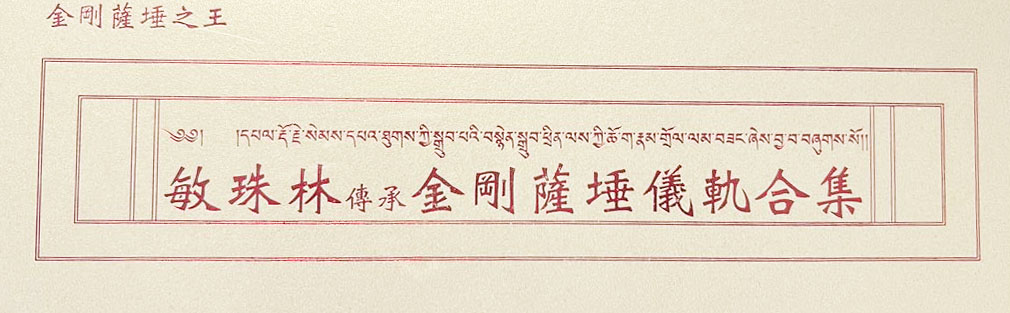 金剛薩埵之王
༄༅། །དཔལ་རྡོ་རྗེ་སེམས་དཔའ་ཐུགས་ཀྱི་སྒྲུབ་པའི་བསྙེན་སྒྲུབ་ཕྲིན་ལས་ཀྱི་ཆོ་ག་རྣམ་གྲོལ་ལམ་བཟང་ཞེས་བྱ་བ་བཞུགས་སོ།།
敏珠林傳承金剛薩埵儀軌合集